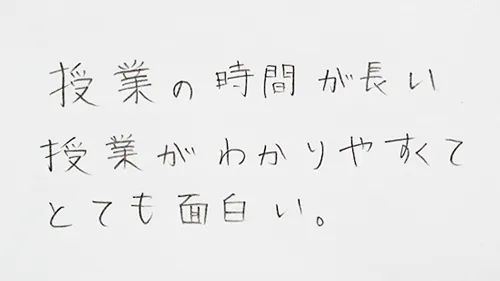 授業の時間が長い
授業がわかりやすくて
とても面白い。